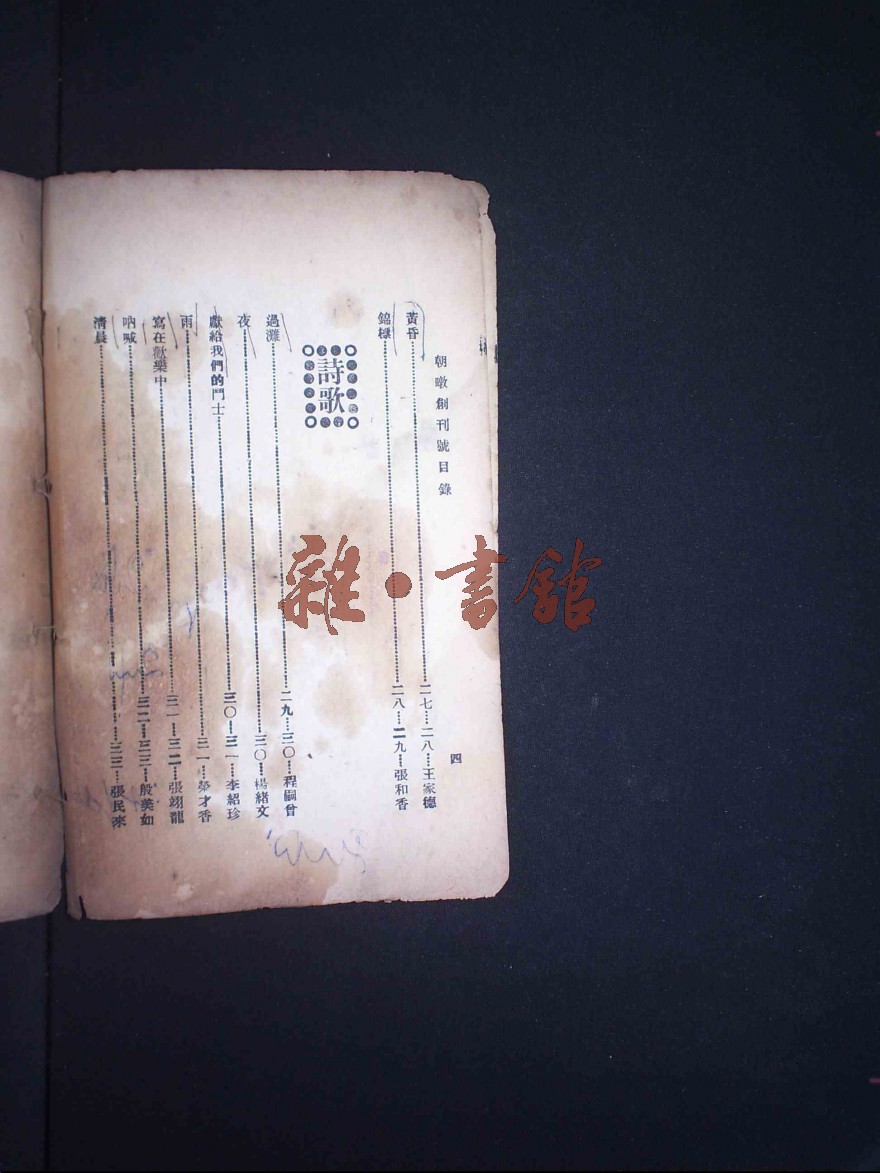 朝暾創刊號目錄 四
黃昏……二七—二八…王家德
錦標……二八—二九…張和香
詩歌
過灘……二九…三〇…程嗣曾
夜……三〇…楊緒文
獻給我們的鬥士……三〇—三一…李紹珍
雨……三一…勞才香
寫在歡樂中……三一…三二…張翊龍
吶喊……三二—三三…殷美如
清晨……三三…張民來
雜·書館